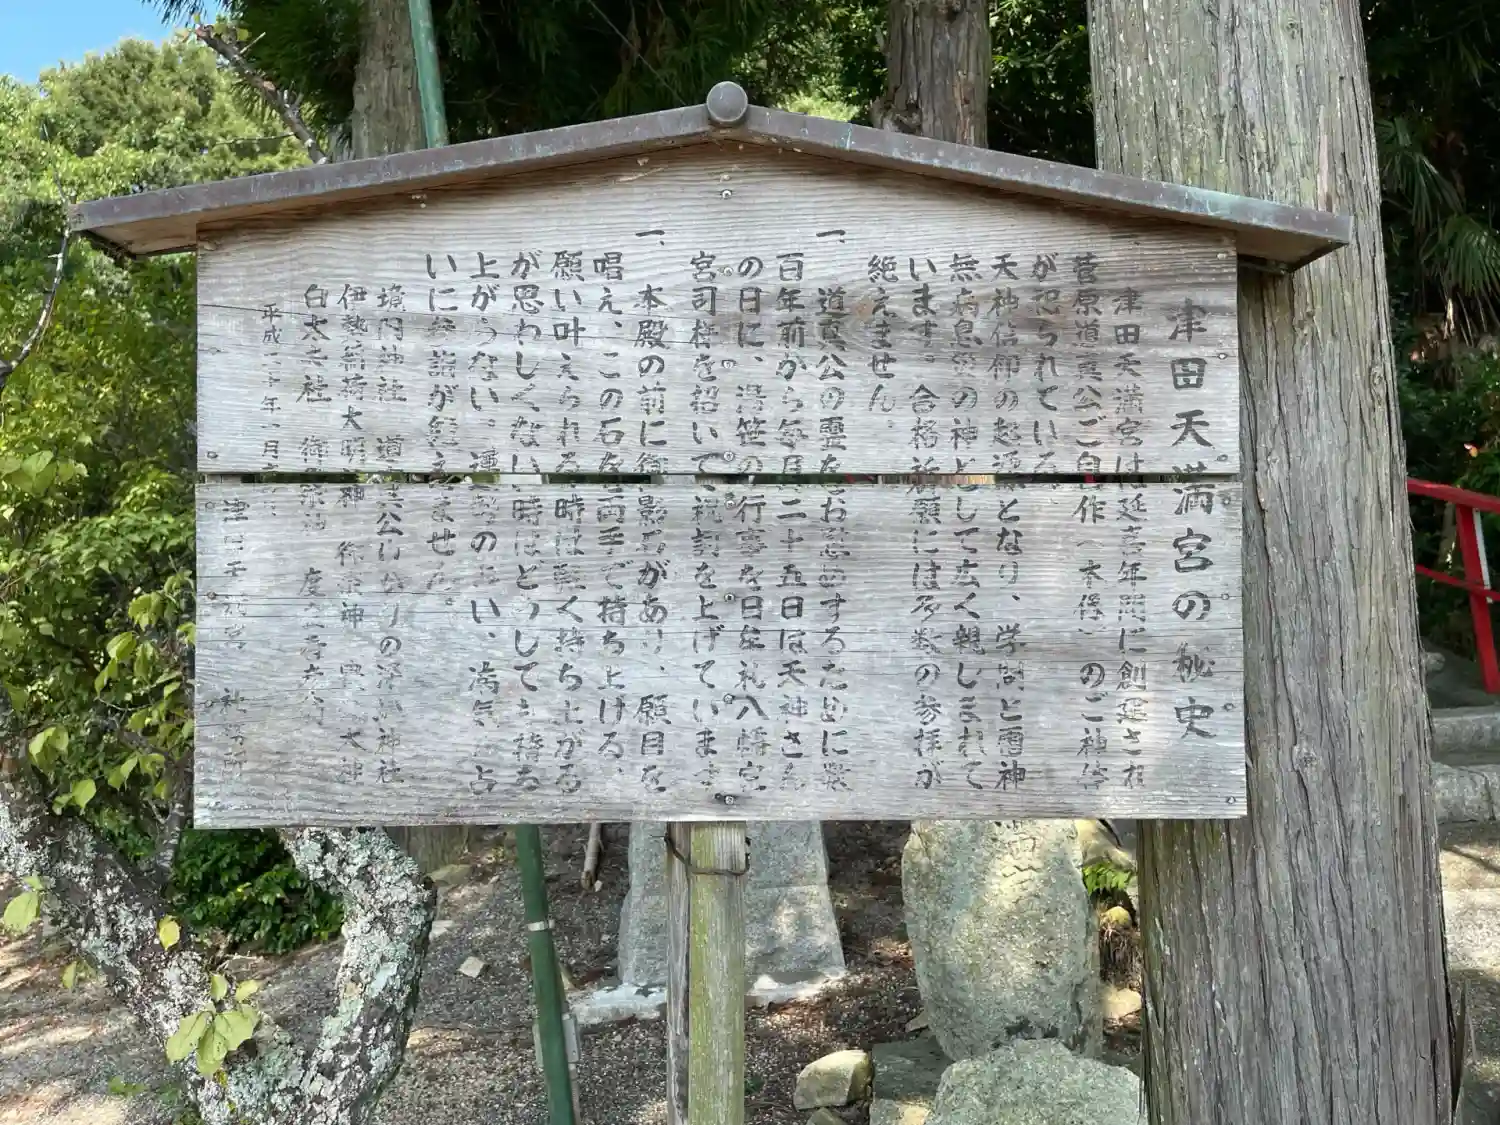 津田天満宮の秘史
一、津田天満宮は延喜年間に創建され
菅原道真公ご自作（木像）のご神体
が祀られている。
天神信仰の起源となり、学問と雷神
無病息災の神として広く親しまれて
います。合格祈願には多数の参拝が
絶えません。
一、道真公の霊をお慰めするために
百年前から毎月二十五日は天神さん
の日に、湯笹の行事を日年礼八幡宮
宮司様を招いて祝詞を上げています
一、本殿の前に御影石があり、願目を
唱え、この石を両手で持ち上げる、
願い叶えられる時は軽く持ち上がる
が思わしくない時はどうしても持ち
上がらない。運勢の占い、病気占
いに参詣が絶えません。
境内神社 道真公山祭りの浮 神社
伊勢稲荷大明神 御祭神 大神
白太夫社 御祭神 度会春彦
平成二十年一月
津田天満宮 社務所